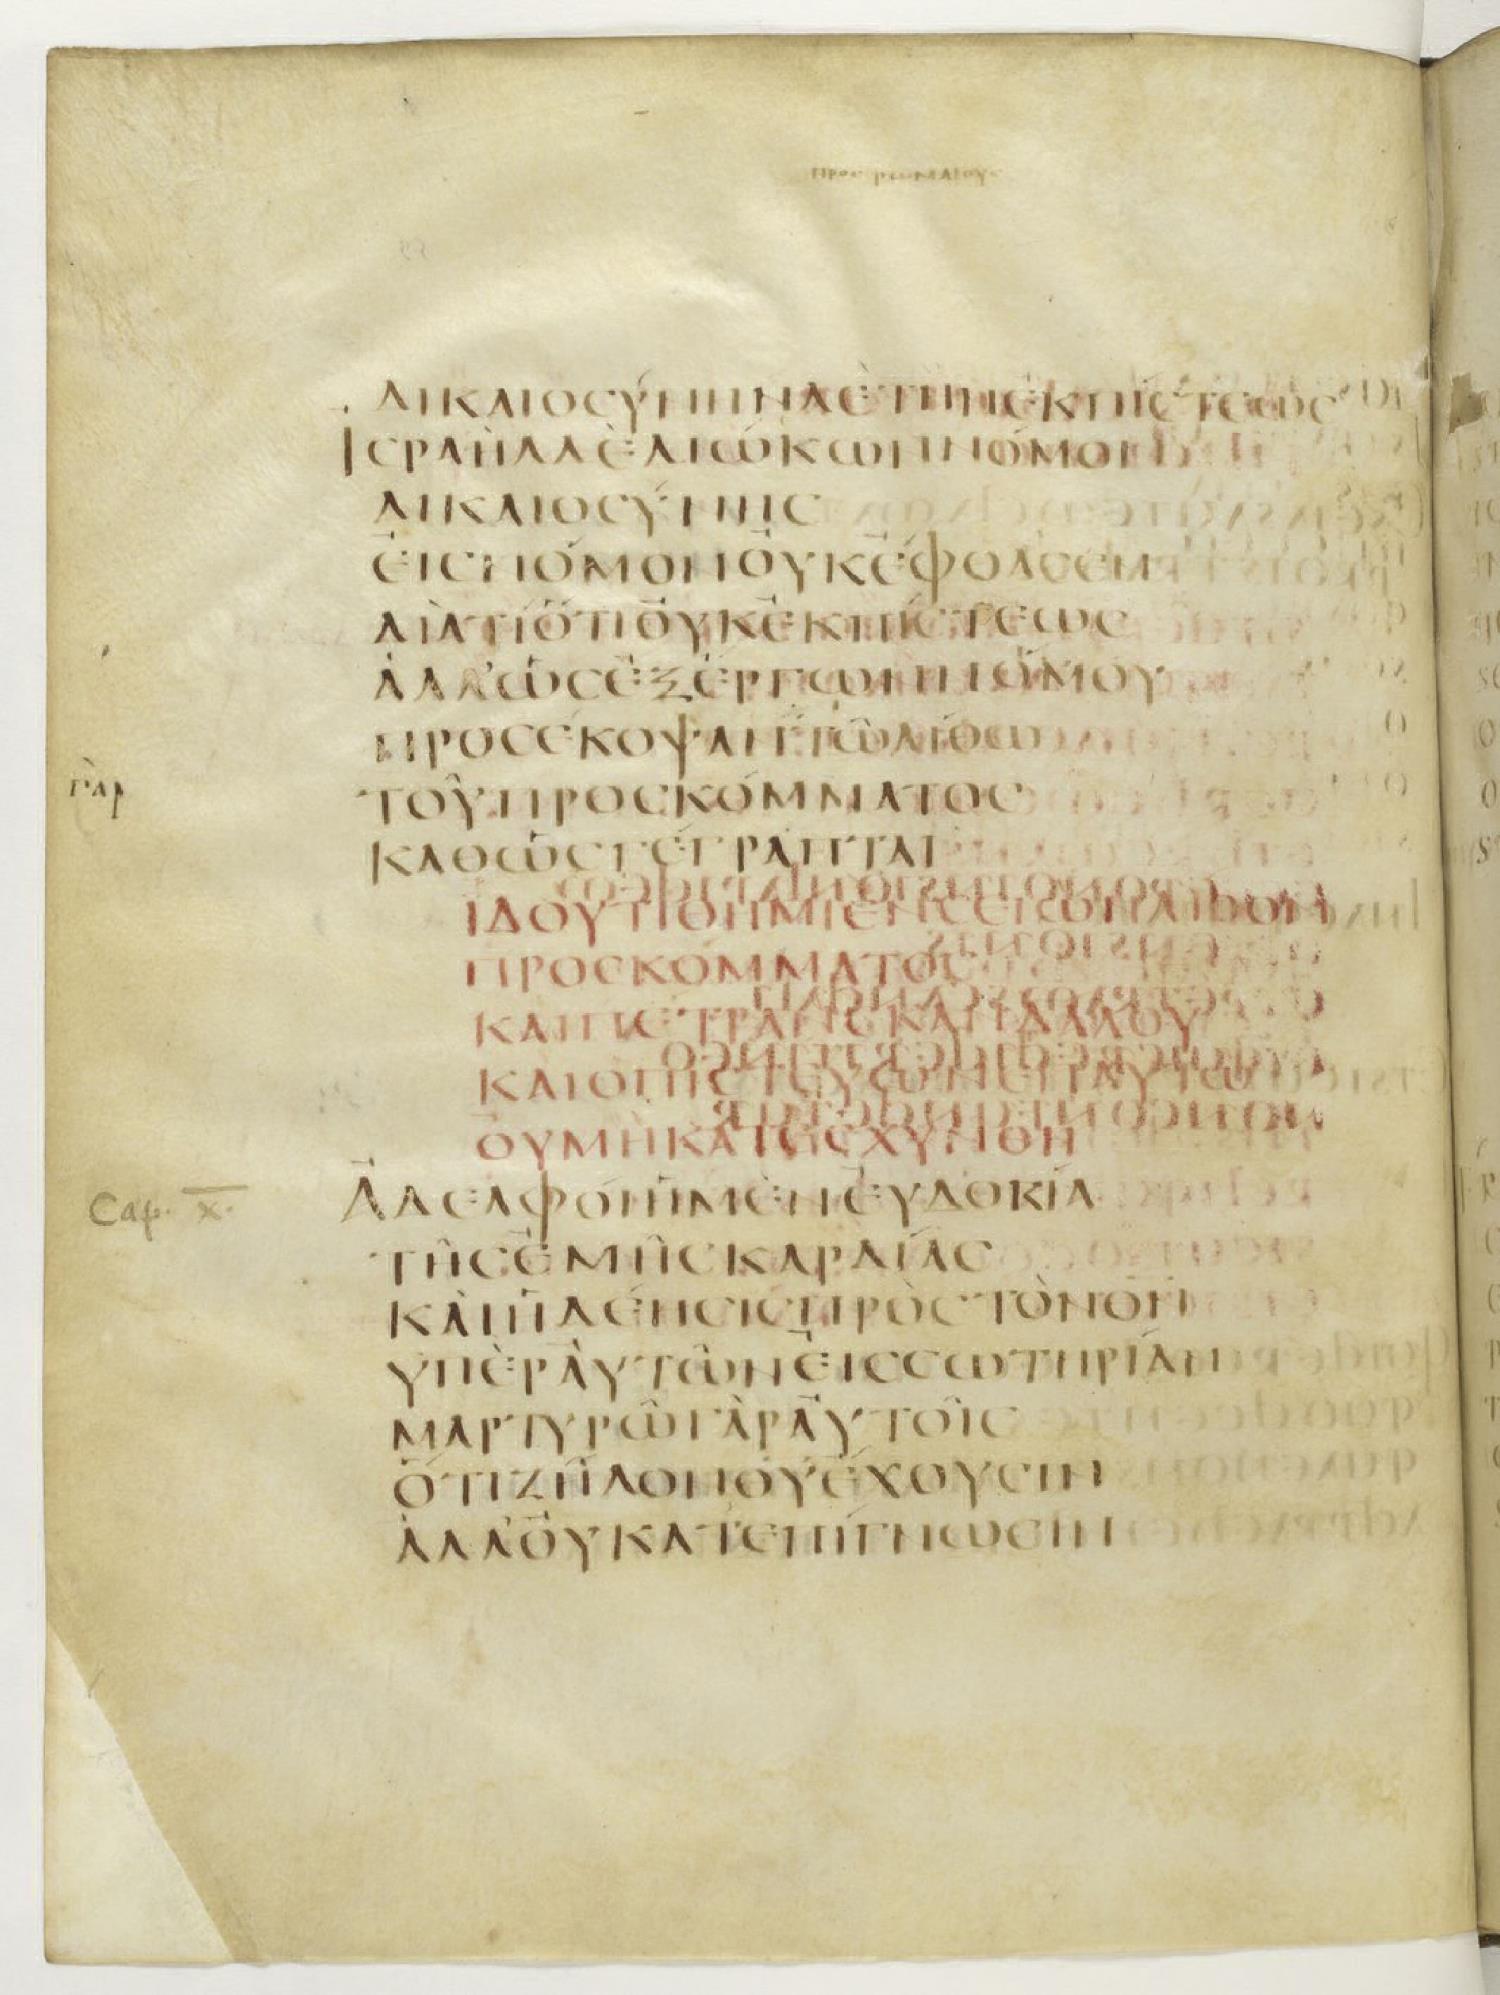 ΠΡΟΣ ΡΩΜΑΙΟΥΣ
ΔΙΚΑΙΟCΥΝΗΝΔΕΤΗΝΕΚΠΙCΤΕΩC
ΙCΡΑΗΛΔΕΔΙΩΚΩΝΝΟΜΟΝ
ΔΙΚΑΙΟCΥΝΗC
ΕΙCΝΟΜΟΝΟΥΚΕΦΘΑCΕΝ
ΔΙΑΤΙΟΤΙΟΥΚΕΚΠΙCΤΕΩC
ΑΛΛΩCΕΞΕΡΓΩΝΝΟΜΟΥ
ΠΡΟCΕΚΟΨΑΝΤΩΛΙΘΩ
ΓΑΡ
ΤΟΥΠΡΟCΚΟΜΜΑΤΟC
ΚΑΘΩCΓΕΓΡΑΠΤΑΙ
ΙΔΟΥΤΙΘΗΜΙΕΝCΕΙΩΝΛΙΘΟΝ
ΠΡΟCΚΟΜΜΑΤΟC
ΚΑΙΠΕΤΡΑΝCΚΑΝΔΑΛΟΥ
ΚΑΙΟΠΙCΤΕΥΩΝΕΠΑΥΤΩ
ΟΥΜΗΚΑΤΕCΧΥΝΘΗ
Cap. X.
ΑΔΕΛΦΟΙΗΜΕΝΕΥΔΟΚΙΑ
ΤΗCΕΜΗCΚΑΡΔΙΑC
ΚΑΙΗΔΕΗCΙCΠΡΟCΤΟΝΘΝ
ΥΠΕΡΑΥΤΩΝΕΙCCΩΤΗΡΙΑΝ
ΜΑΡΤΥΡΩΓΑΡΑΥΤΟΙC
ΟΤΙΖΗΛΟΝΘΥΕΧΟΥCΙΝ
ΑΛΛΟΥΚΑΤΕΠΙΓΝΩCΙΝ